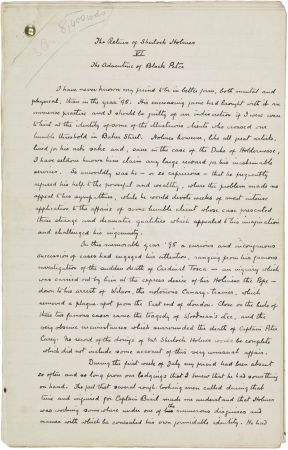 8,400 words
The Return of Sherlock Holmes
VI
The Adventure of Black Peter
I have never known my friend to be in better form, both mental and
physical, than in the year '95. His increasing fame had brought with it an
immense practice and I should be guilty of an indiscretion if I were even
to hint at the identity of some of the illustrious clients who crossed our
humble threshold in Baker Street. Holmes however, like all great artists,
lived for his art's sake and, save in the case of the Duke of Holdernesse,
I have seldom known him claim any large reward for his inestimable
services. So unworldly was he – or so capricious – that he frequently
refused his help to the powerful and wealthy, where the problem made no
appeal to his sympathies, while he would devote weeks of most intense
application to the affairs of some humble client whose case presented
those strange and dramatic qualities which appealed to his imagination
and challenged his ingenuity.
In this memorable year '95 a curious and incongruous
succession of cases had engaged his attention, ranging from his famous
investigation of the sudden death of Cardinal Tosca – an inquiry which
was carried out by him at the express desire of His Holiness the Pope –
down to his arrest of Wilson, the notorious Canary-trainer, which
removed a plague-spot from the East end of London. Close on the heels of
these two famous cases came the tragedy of Woodman's Lee, and the
very obscure circumstances which surrounded the death of Captain Peter
Carey. No record of the doings of Mr Sherlock Holmes would be complete
which did not include some account of this very unusual affair.
During the first week of July my friend had been absent
so often and so long from our lodgings that I knew that he had something
on hand. The fact that several rough looking men called during that
time and inquired for Captain Basil made me understand that Holmes
was working somewhere under one of the numerous disguises and
names with which he concealed his own formidable identity. He had